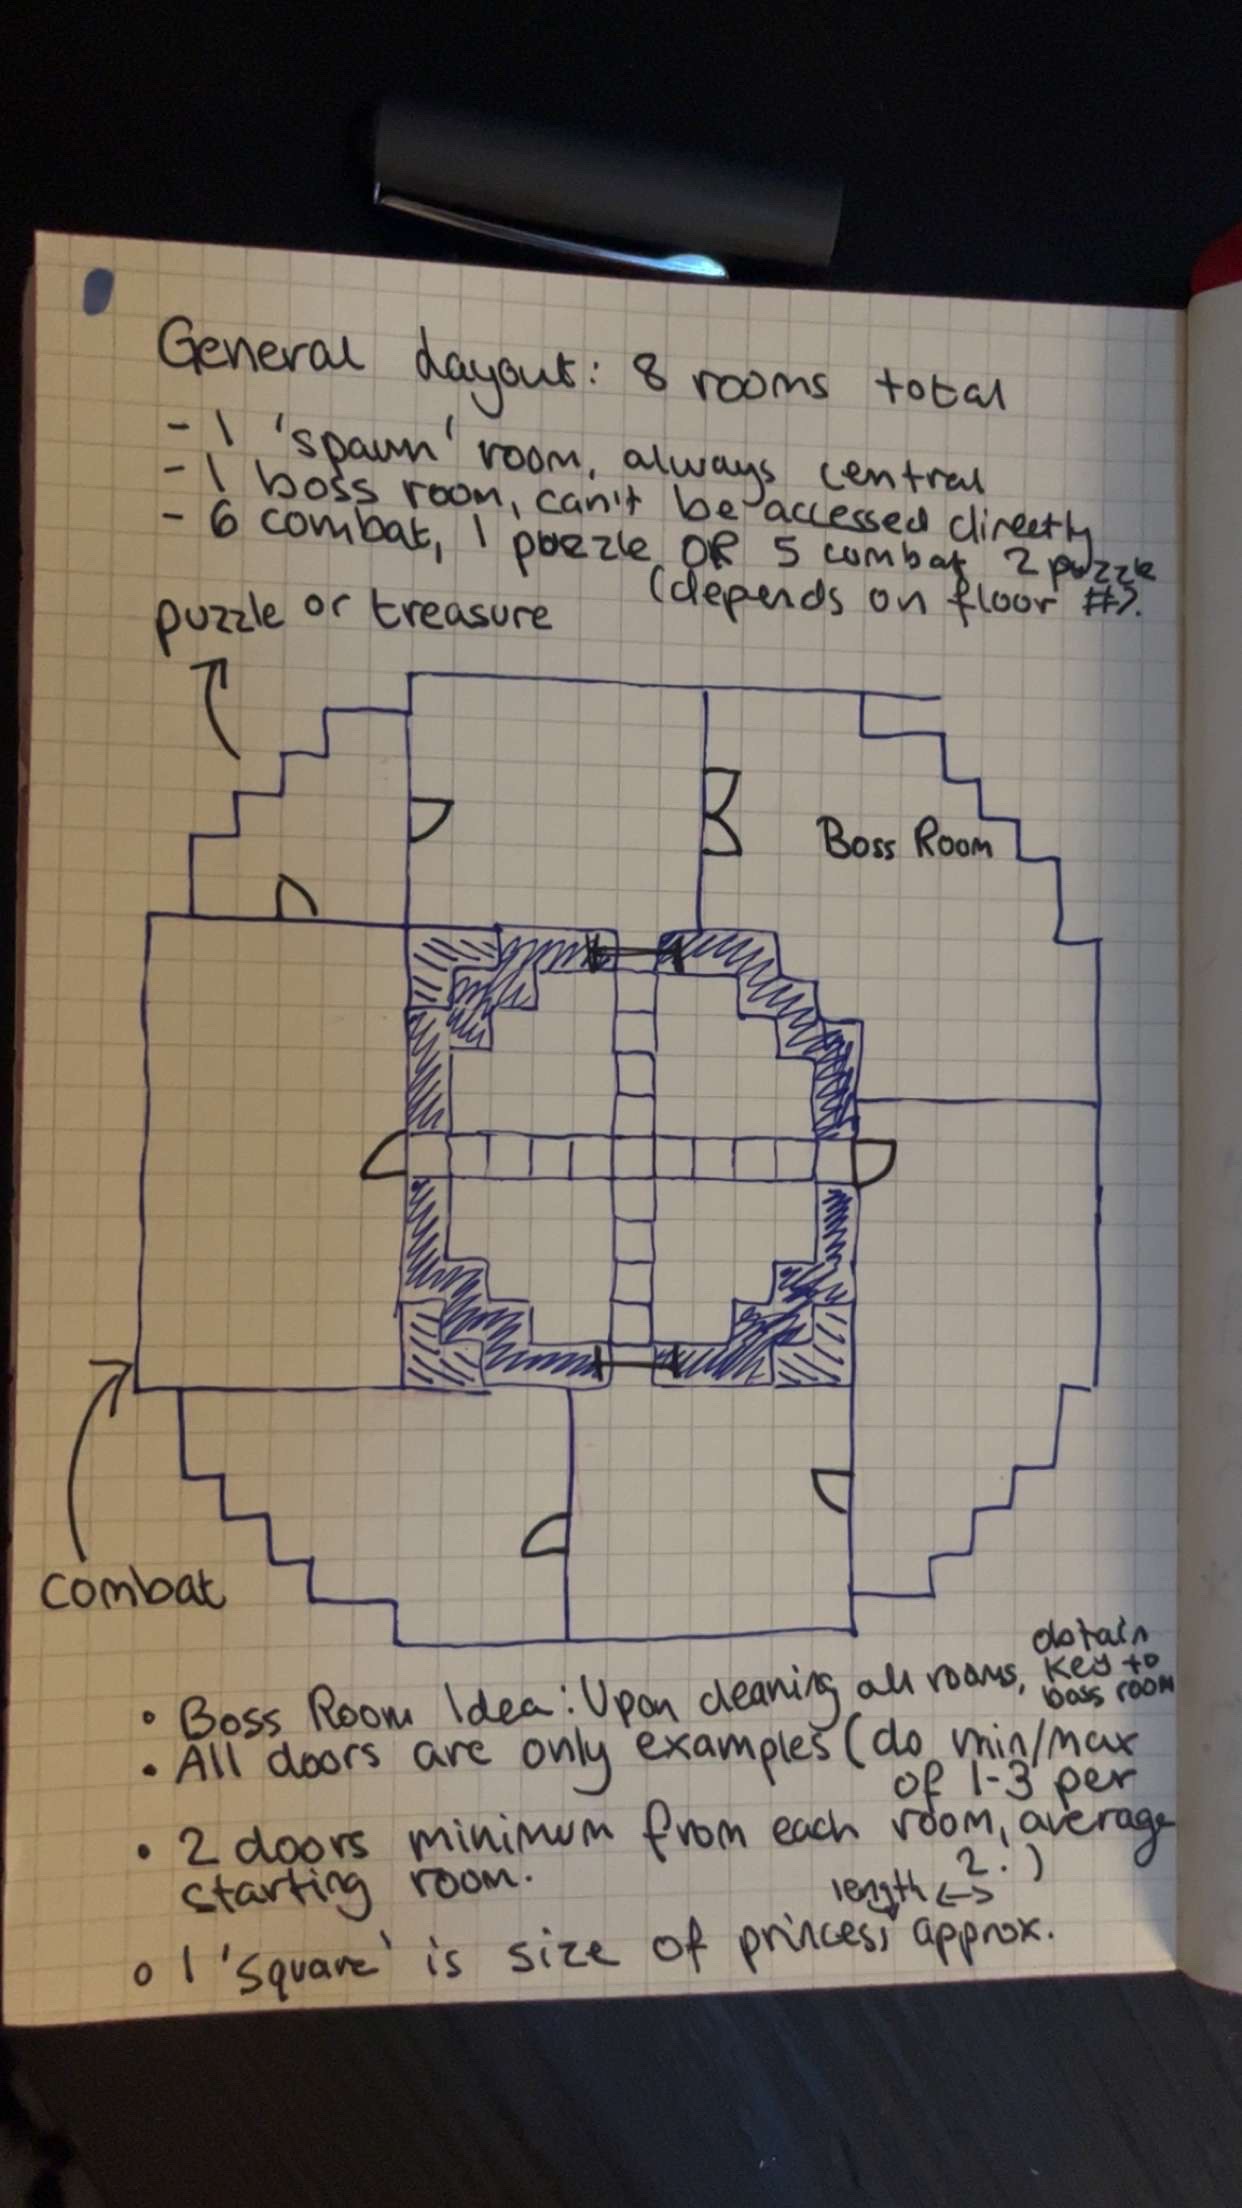 General Layout: 8 rooms total
- 1 'spawn' room, always central
- 1 boss room, can't be accessed directly
- 6 combat, 1 puzzle OR 5 combat 2 puzzle
(depends on floor #).
puzzle or treasure
Boss Room
combat
• Boss Room Idea: Upon cleaning all rooms, obtain key to boss room
• All doors are only examples (do min/max
of 1-3 per
room, average
2.)
• 2 doors minimum from each
starting room.
length <->
o 1 'square' is size of princess approx.